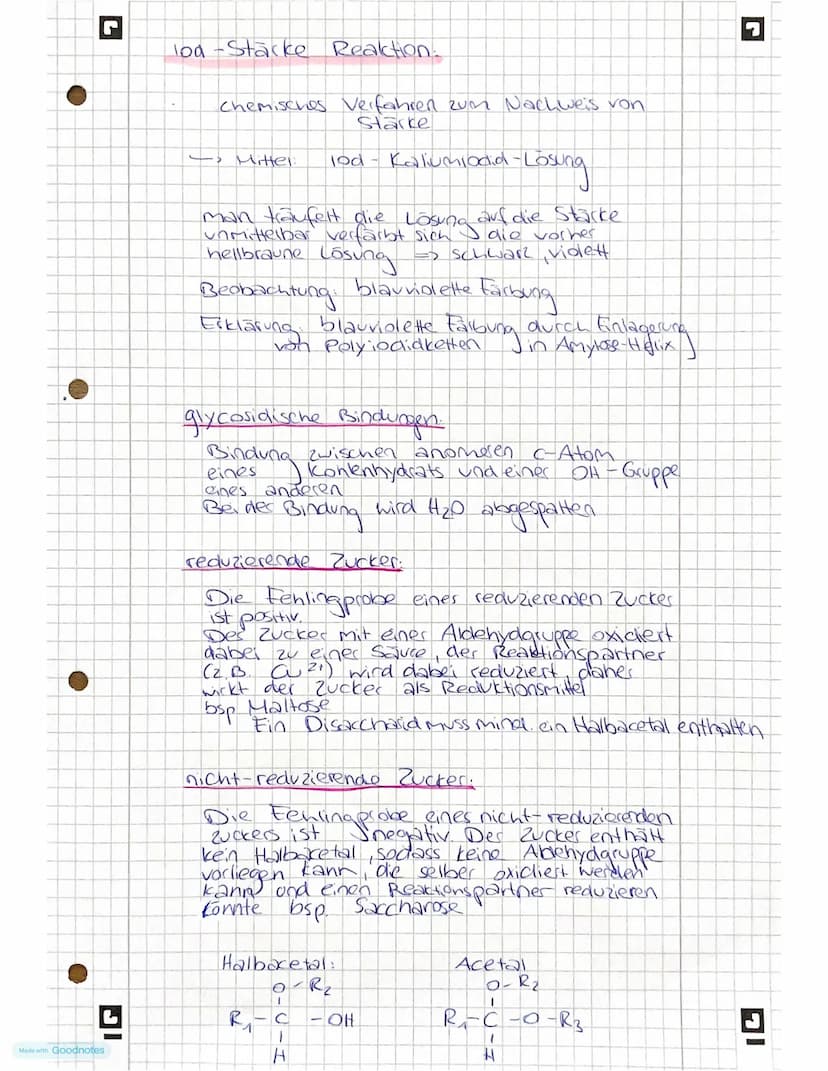 Iod-Stärke Reaktion:
chemisches Verfahren zum Nachweis von
Stärke
→ Mittel: Iod-Kaliumiodid-Lösung
man träufelt die Lösung auf die Stärke
unmittelbar verfärbt sich die vorher
hellbraune Lösung => schwarz, violett
Beobachtung: blauviolette Färbung
Erklärung: blauviolette Färbung durch Einlagerung
von Polyiodidketten in Amylose-Helix
glycosidische Bindungen:
Bindung zwischen anomeren C-Atom
eines Kohlenhydrats und einer OH-Gruppe
eines anderen
Bei der Bindung wird H₂O abgespalten
reduzierende Zucker:
Die Fehlingprobe eines reduzierenden Zucker
ist positiv.
Der Zucker mit einer Aldehydgruppe oxidiert
dabei zu einer Säure, der Reaktionspartner
(z.B. Cu²⁺) wird dabei reduziert, daher
wirkt der Zucker als Reduktionsmittel
bsp Maltose
Ein Disaccharid muss mind. ein Halbacetal enthalten
nicht-reduzierende Zucker:
Die Fehlingprobe eines nicht-reduzierenden
Zuckers ist negativ. Der Zucker enthält
kein Halbacetal, sodass keine Aldehydgruppe
vorliegen kann, die selber oxidiert werden
kann und einen Reaktionspartner reduzieren
könnte bsp. Saccharose
Halbacetal: Acetal
O-R₂ O-R₂
R₁-C-OH R₁-C-O-R₃
H H
Made with Goodnotes